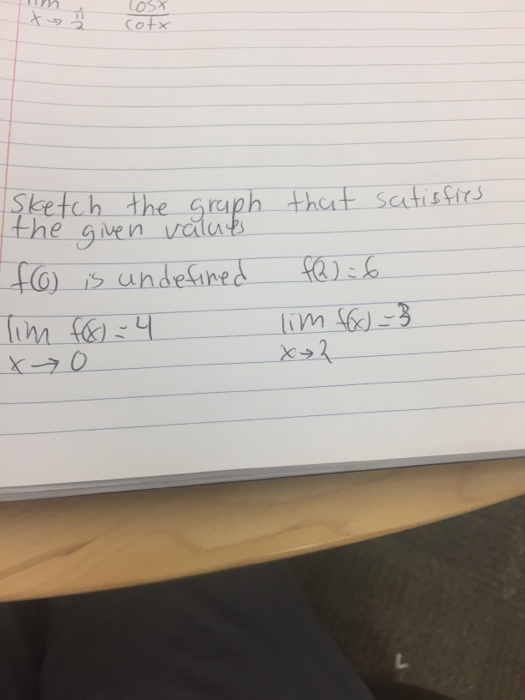 lim cosx
x→π/2 cotx
Sketch the graph that satisfies
the given values
f(0) is undefined f(2)=6
lim f(x)=4 lim f(x)=3
x→0 x→2